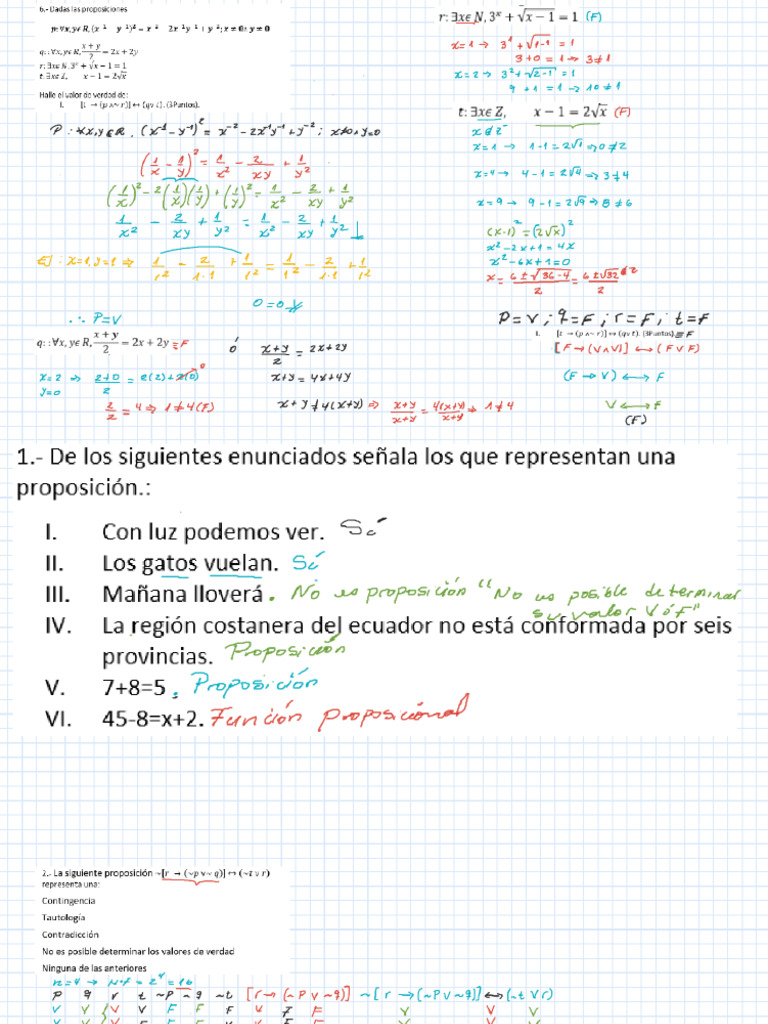 6.- Dadas las proposiciones
p: ∀x,y∈R, (x⁻¹ y⁻¹)² = x⁻² 2x⁻¹y⁻¹ + y⁻²; x ≠ 0; y ≠ 0
q: :∀x,y∈R, (x + y)/2 = 2x + 2y
r: ∃x∈N, 3ˣ + √(x − 1) = 1
t: ∃x∈Z, x − 1 = 2√x
Halle el valor de verdad de:
I. [t → (p ∧~ r)] ↔ (q∨ t). (3Puntos).
P : ∀x,y∈R, (x⁻¹ - y⁻¹)² = x⁻² - 2x⁻¹y⁻¹ + y⁻² ; x≠0 ∧ y≠0
(1/x - 1/y)² = 1/x² - 2/xy + 1/y²
(1/x)² - 2(1/x)(1/y) + (1/y)² = 1/x² - 2/xy + 1/y²
1/x² - 2/xy + 1/y² = 1/x² - 2/xy + 1/y²
Ej: x=1, y=1 ⇒ 1/1² - 2/1·1 + 1/1² = 1/1² - 2/1·1 + 1/1²
0=0
∴ P=V
q: :∀x,y∈R, (x + y)/2 = 2x + 2y = F
x=2 ⇒ (2+0)/2 = 2(2)+2(0) 0
y=0
2/2 = 4 ⇒ 1≠4 (F)
ó (x+y)/2 = 2x+2y
x+y = 4x+4y
x+y ≠ 4(x+y) ⇒ (x+y)/(x+y) = 4(x+y)/(x+y) ⇒ 1≠4
r: ∃x∈N, 3ˣ + √(x − 1) = 1 (F)
x=1 ⇒ 3¹ + √(1-1) = 1
3+0=1 ⇒ 3≠1
x=2 ⇒ 3² + √(2-1) = 1
9 + 1 = 1 ⇒ 10≠1
t: ∃x∈Z, x − 1 = 2√x (F)
x∉Z⁻
x=1 → 1-1 = 2√1 ⇒ 0≠2
x=4 → 4-1 = 2√4 ⇒ 3≠4
x=9 → 9-1 = 2√9 ⇒ 8≠6
(x-1)² = (2√x)²
x²-2x+1 = 4x
x²-6x+1=0
x = (6±√(36-4))/2 = (6±√32)/2 ∉Z
P=V ; q=F ; r=F ; t=F
I. [t → (p ∧~ r)] ↔ (q∨ t). (3Puntos). ≡ F
[F → (V∧V)] ↔ (F∨F)
(F → V) ↔ F
V ↔ F
(F)
1.- De los siguientes enunciados señala los que representan una
proposición.:
I. Con luz podemos ver. Sí
II. Los gatos vuelan. Sí
III. Mañana lloverá . No es proposición "No es posible determinar
su valor V ó F"
IV. La región costanera del ecuador no está conformada por seis
provincias. Proposición
V. 7+8=5 . Proposición
VI. 45-8=x+2. Función proposicional
2.- La siguiente proposición ~[r → (~p ∨~ q)] ↔ (~t ∨ r)
representa una:
Contingencia
Tautología
Contradicción
No es posible determinar los valores de verdad
Ninguna de las anteriores
n=4 → N·f = 2⁴ = 16
P q r t ~P ~q ~t [r → (~P ∨ ~q)] ~[r → (~P ∨ ~q)] ↔ (~t ∨ r)
V V V V F F F V F F V V V